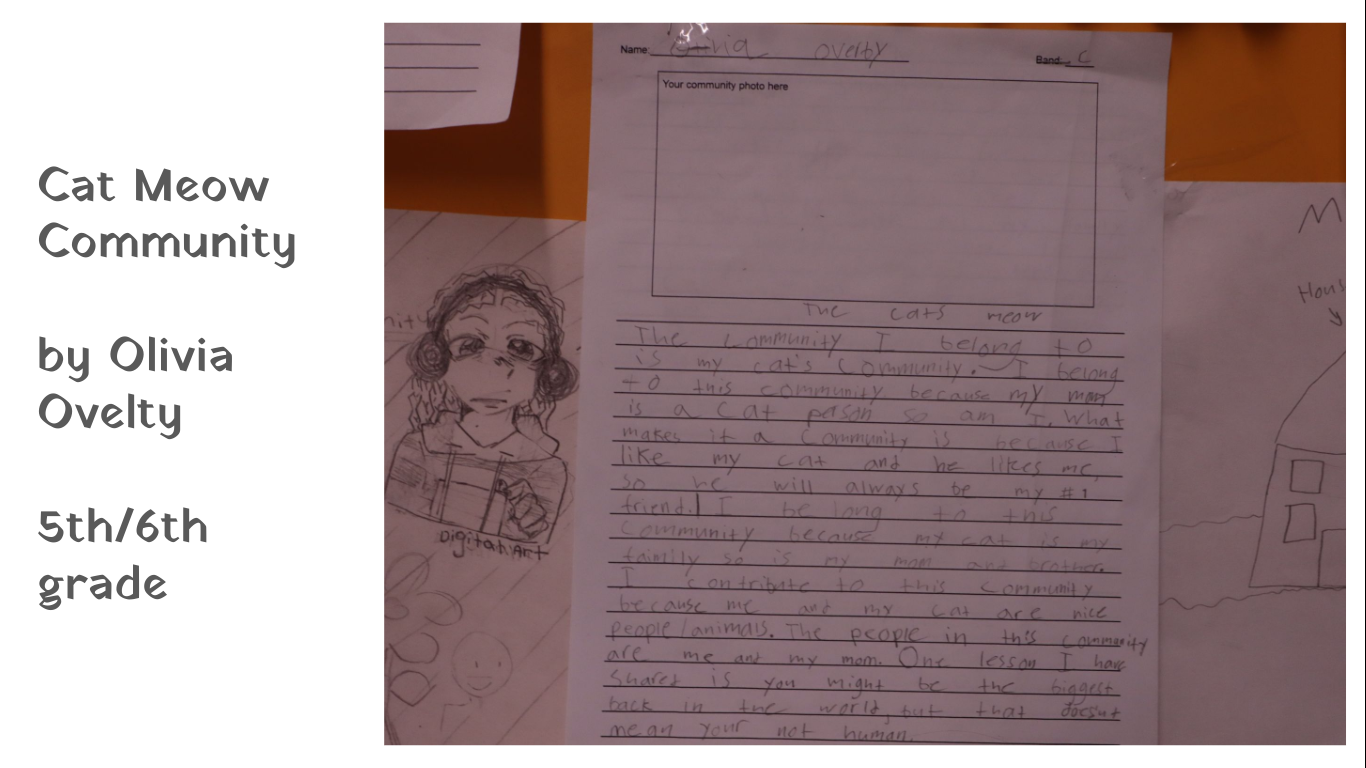 Cat Meow
Community
by Olivia
Ovelty
5th/6th
grade
Name: Olivia Ovelty
Band: C
Your community photo here
The cats meow
The community I belong to
is my cat's community. I belong
to this community because my mom
is a cat person so am I. What
makes it a community is because I
like my cat and he likes me,
so he will always be my #1
friend. I be long to this
community because my cat is my
faimily so is my mom and brother.
I contribute to this community
because me and my cat are nice
people/animals. The people in this community
are me and my mom. One lesson I have
shared is you might be the biggest
back in the world, but that doesn't
mean your not human.
Digital Art
M
Hous